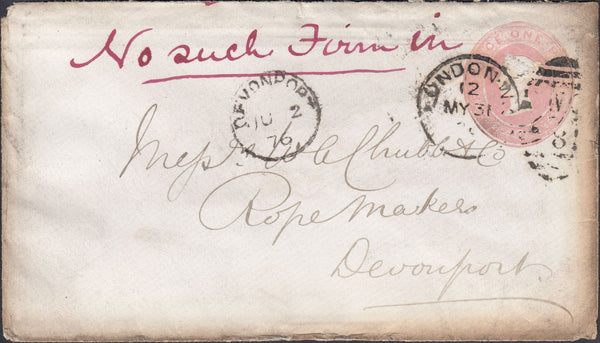 No such Firm in
ONE
DEVONPORT
JU 2
76
LONDON·W
12
MY 31
W
8
Messrs W C Chubb & Co
Rope Makers
Devonport.